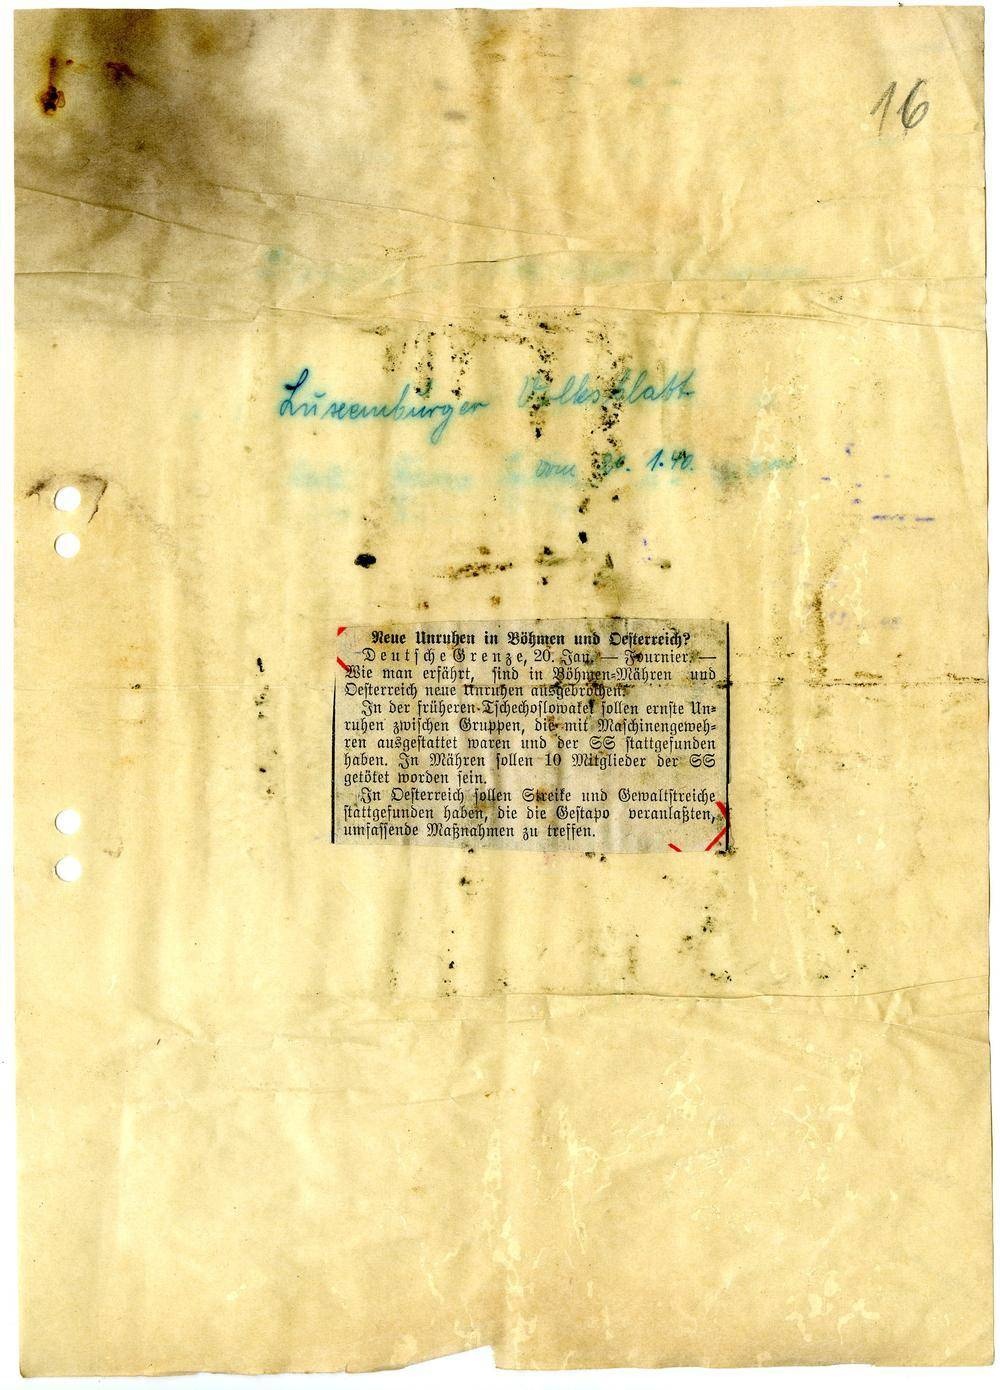 16
Luxemburger Volksblatt
vom 20. 1. 40.
Neue Unruhen in Böhmen und Oesterreich?
Deutsche Grenze, 20. Jan. — Fournier. —
Wie man erfährt, sind in Böhmen-Mähren und
Oesterreich neue Unruhen ausgebrochen.
In der früheren Tschechoslowakei sollen ernste Un-
ruhen zwischen Gruppen, die mit Maschinengeweh-
ren ausgestattet waren und der SS stattgefunden
haben. In Mähren sollen 10 Mitglieder der SS
getötet worden sein.
In Oesterreich sollen Streike und Gewaltstreiche
stattgefunden haben, die die Gestapo veranlaßten,
umfassende Maßnahmen zu treffen.